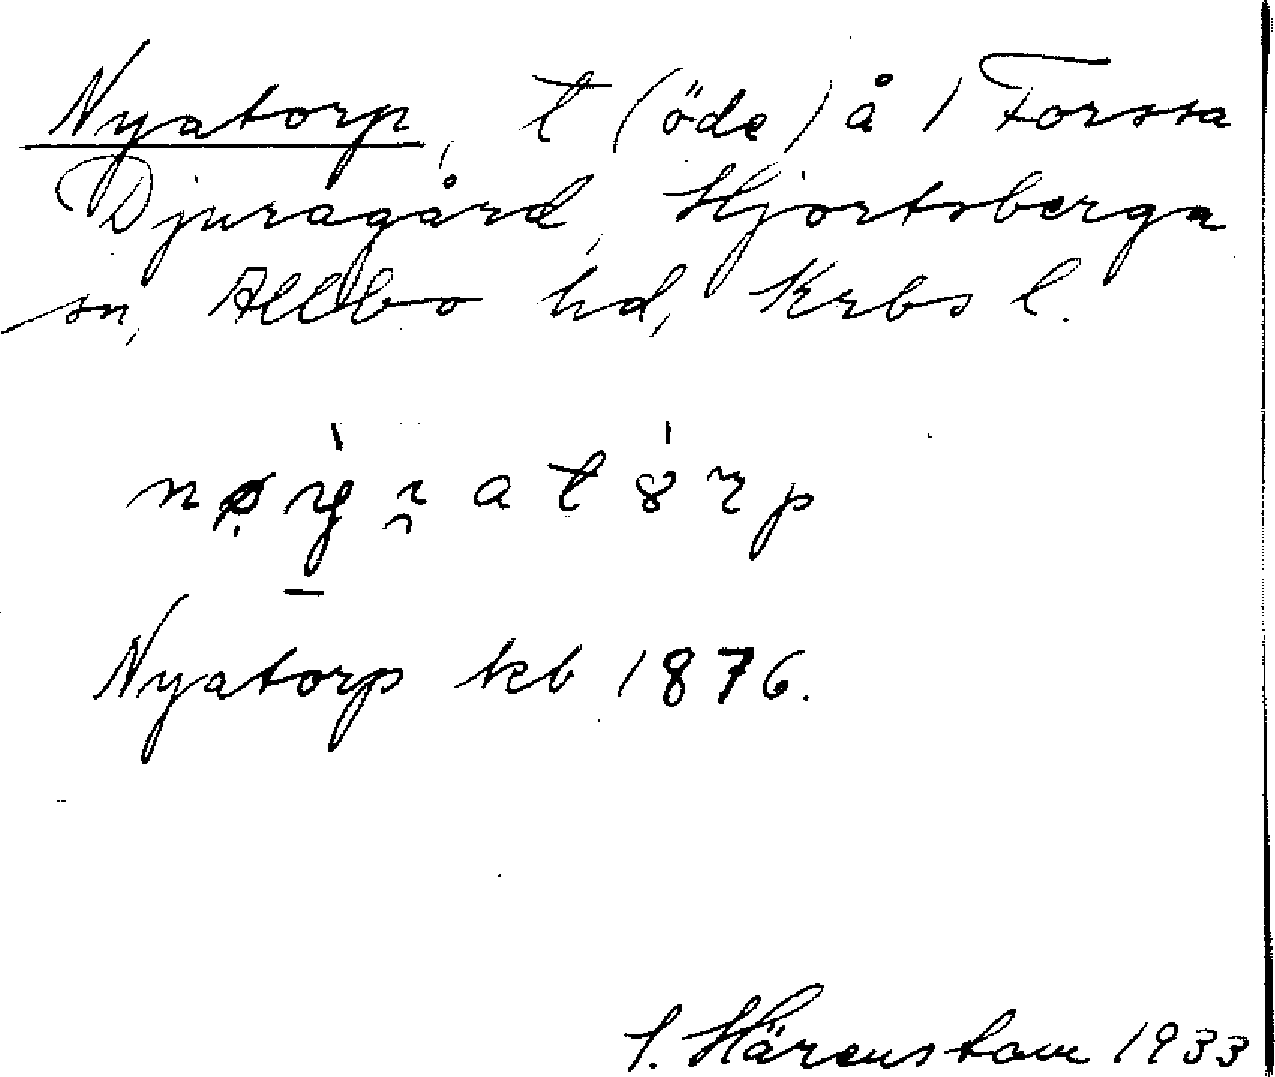 Nyatorp, t (öde) å 1 Forssa
Djuragård, Hjortsberga
sn, Allbo hd, Krbs l.
Nyatorp kb 1876.
Härenstam 1933